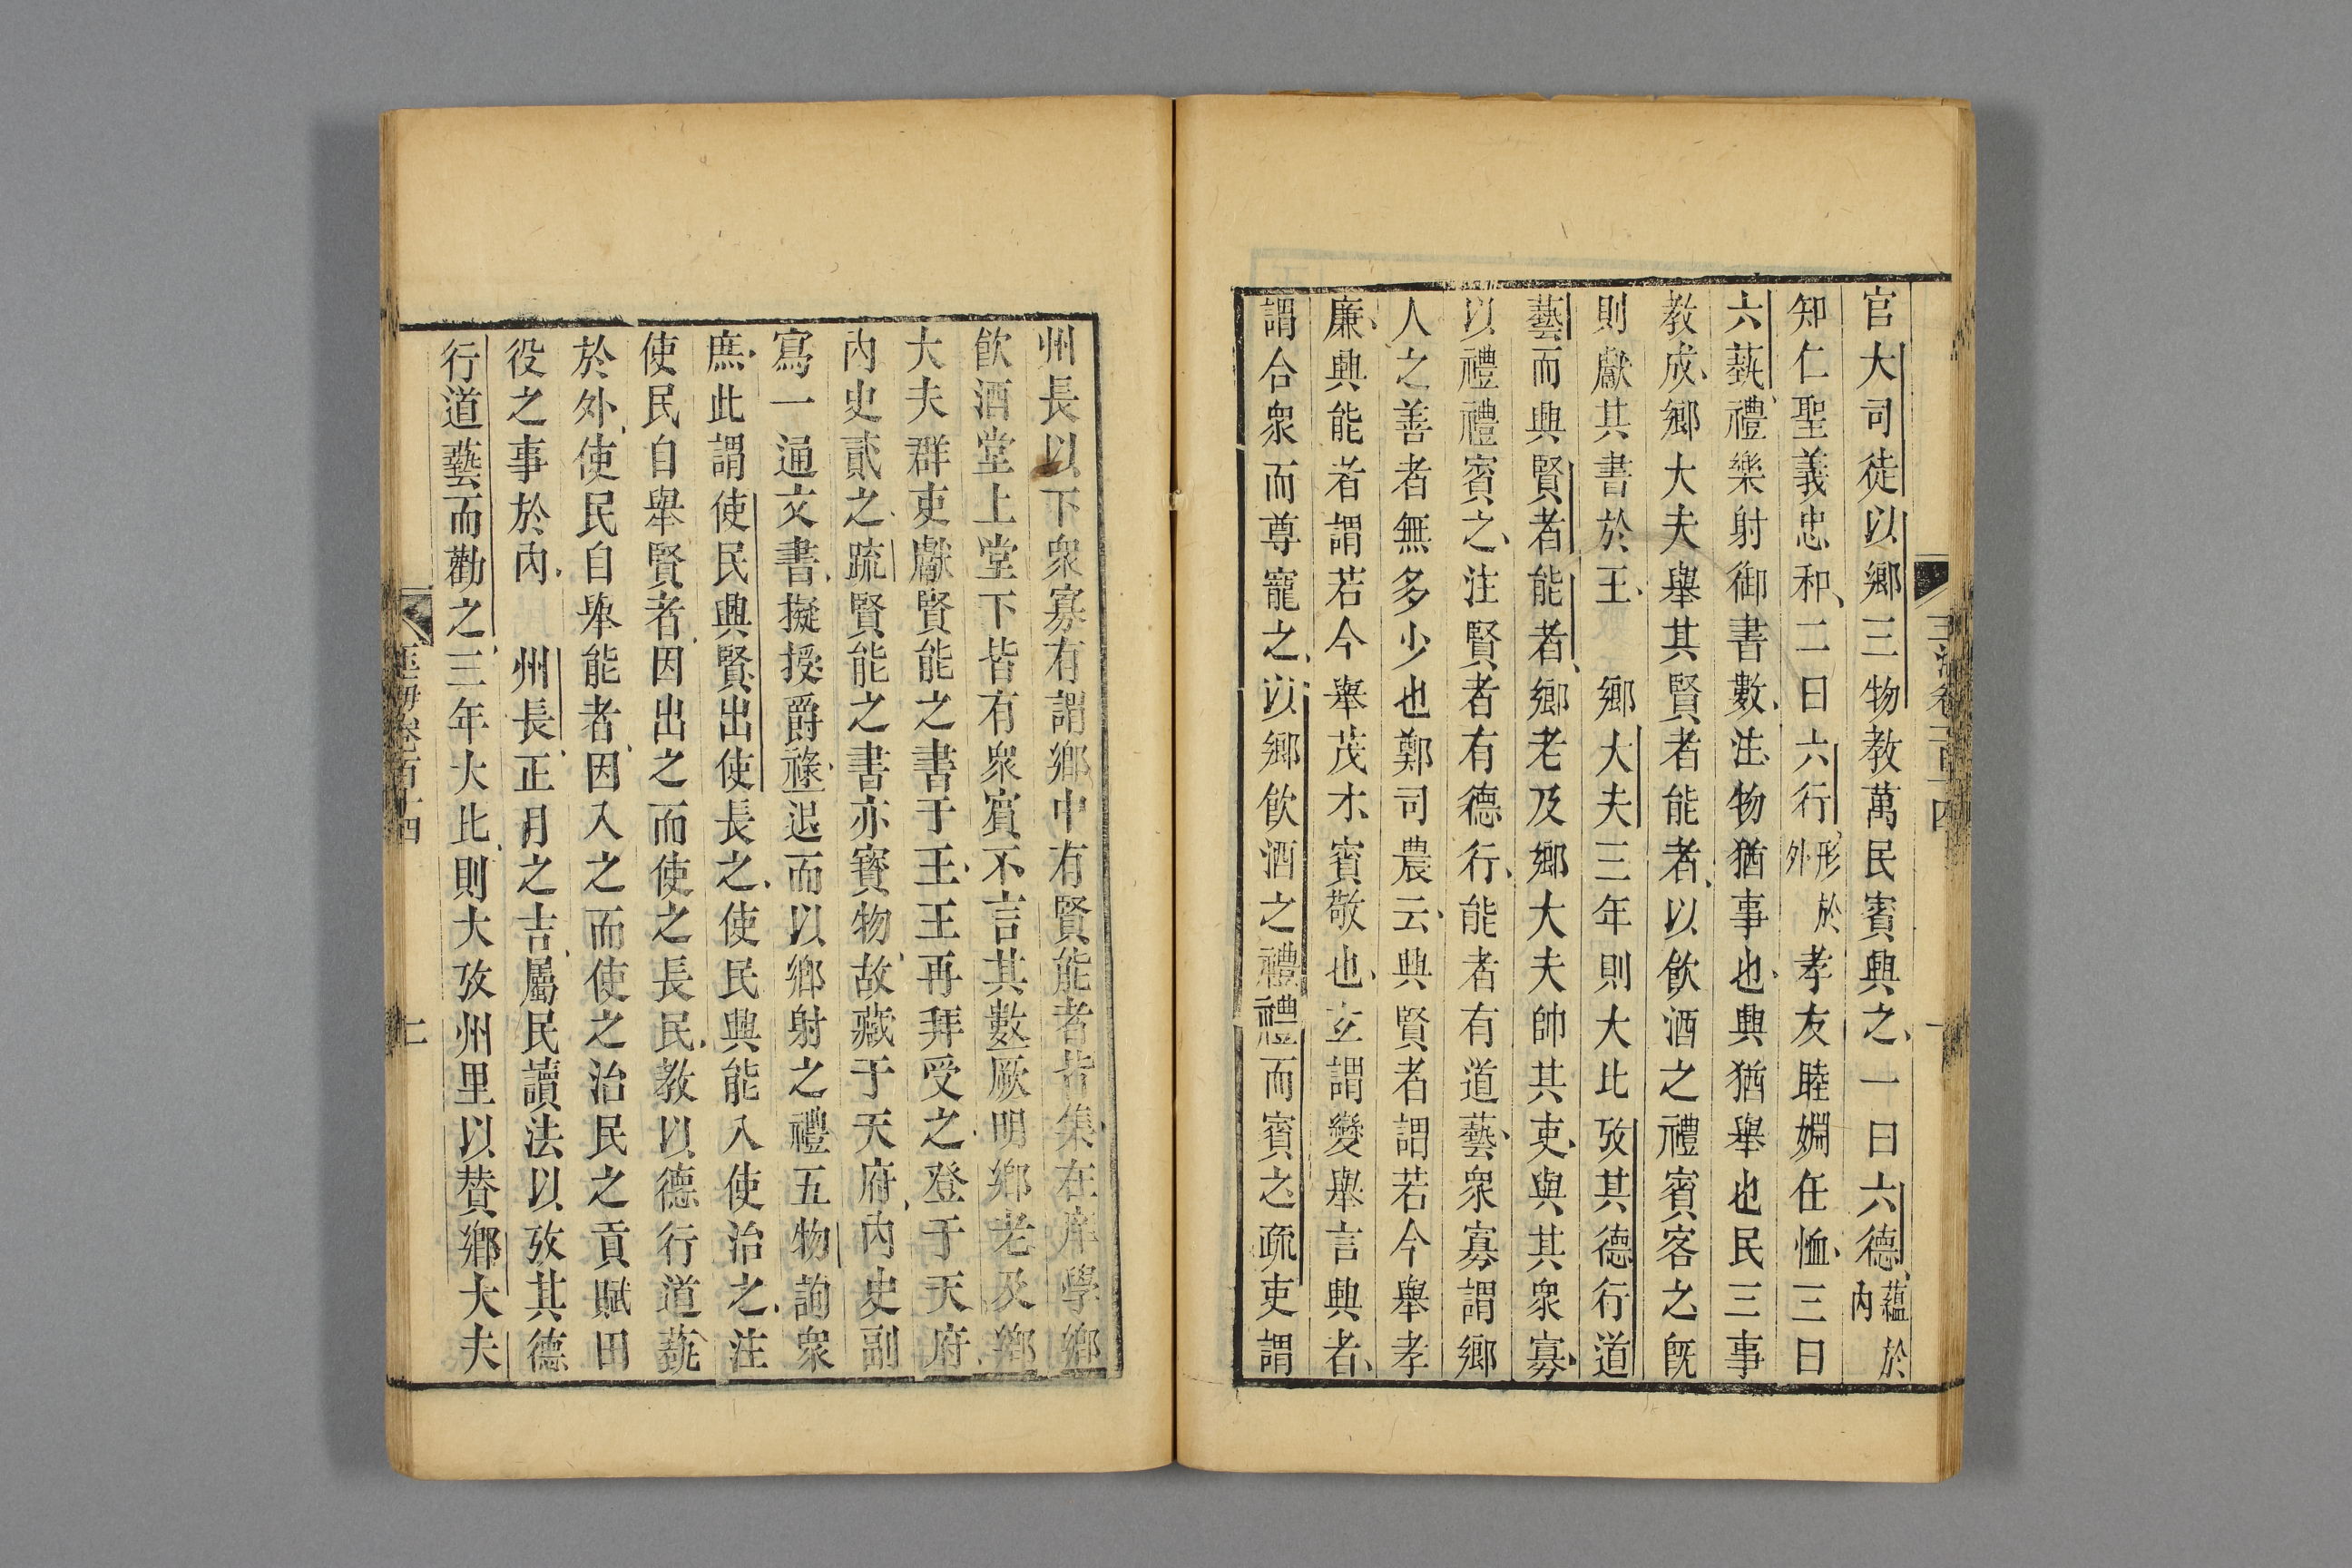 官大司徒以鄉三物教萬民賓興之一曰六德蘊於內
知仁聖義忠和二曰六行形於外孝友睦婣任恤三曰
六藝禮樂射御書數注物猶事也興猶舉也民三事
教成鄉大夫舉其賢者能者以飲酒之禮賓客之旣
則獻其書於王 鄉大夫三年則大比攷其德行道
藝而興賢者能者鄉老及鄉大夫帥其吏與其衆寡
以禮禮賓之注賢者有德行能者有道藝衆寡謂鄉
人之善者無多少也鄭司農云興賢者謂若今舉孝
廉興能者謂若今舉茂木賓敬也玄謂變舉言興者
謂合衆而尊寵之以鄉飲酒之禮禮而賓之疏吏謂
州長以下衆寡有謂鄉中有賢能者皆集在庠學鄉
飲酒堂上堂下皆有衆賓不言其數厥明鄉老及鄉
大夫群吏獻賢能之書于王王再拜受之登于天府
內史貳之疏賢能之書亦寶物故藏于天府內史副
寫一通文書擬授爵祿退而以鄉射之禮五物詢衆
庶此謂使民興賢出使長之使民興能入使治之注
使民自舉賢者因出之而使之長民教以德行道藝
於外使民自舉能者因入之而使之治民之貢賦田
役之事於內 州長正月之吉屬民讀法以攷其德
行道藝而勸之三年大比則大攷州里以贊鄉大夫